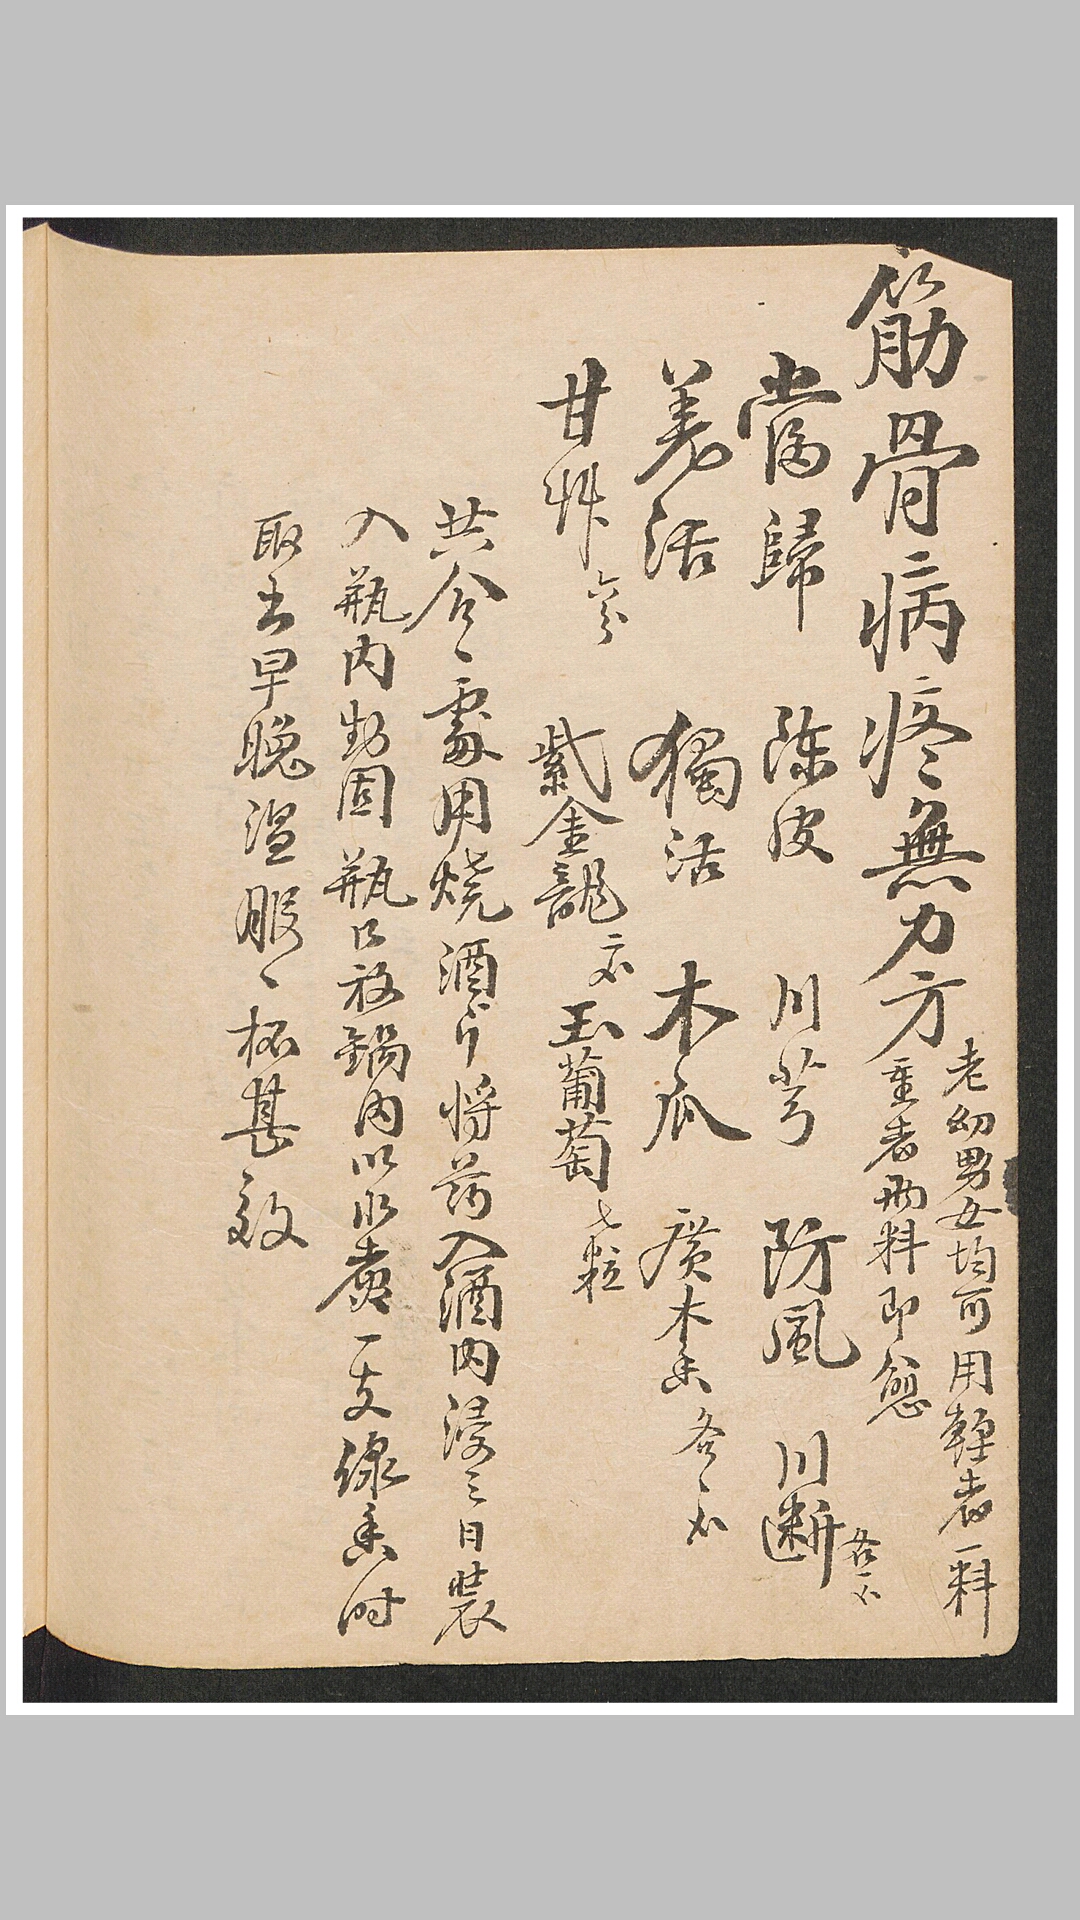 筋骨病疼無力方
老幼男女均可用輕者一料
重者兩料即愈
當歸 陳皮 川芎 防風 川断 各一
羌活 獨活 木瓜 廣木香 各
甘艸 六分 紫金龍 玉葡萄 七粒
共合一處用燒酒 將药入酒內浸三日裝
入瓶內 固瓶口放鍋內以水煮一支線香时
取去早晚温服一杯甚效